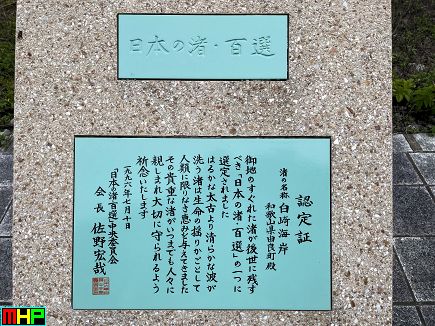 日本の渚・百選
認定証
渚の名称 白崎海岸
和歌山県由良町殿
御地のすぐれた渚が後世に残す
べき「日本の渚百選」の一つに
選定されました
はるかな太古より清らかな波が
洗う渚は生命の揺りかごとして
人類に限りなき恵みを与えてきました
その貴重な渚がいつまでも人々に
親しまれ大切に守られるよう
祈念いたします
一九九六年七月二十日
日本渚百選中央委員会
会長 佐野宏哉
MHP